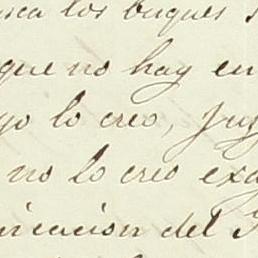 los buques
que no hay en
yo lo creo,
no lo creo exa
nicacion del